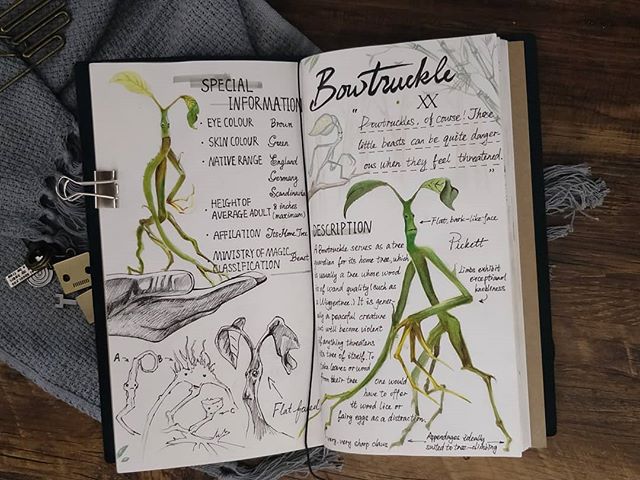 SPECIAL
INFORMATION
• EYE COLOUR Brown
• SKIN COLOUR Green
• NATIVE RANGE England
Germany
Scandinavia
• HEIGHT OF
AVERAGE ADULT 8 inches
(maximum)
• AFFILATION Its Home Tree
• MINISTRY OF MAGIC
CLASSIFICATION Beast
A→
B→
←C
Flat-faced
Bowtruckle
XX
"Bowtruckles, of course! These
little beasts can be quite danger-
ous when they feel threatened.
"
DESCRIPTION
A Bowtruckle serves as a tree
guardian for its home tree, which
is usually a tree whose wood
is of wand quality (such as
a Wiggentree.) It is gener-
ally a peaceful creature
but will become violent
if anything threatens
its tree or itself. To
take leaves or wood
from their tree
one would
have to offer
it wood lice or
fairy eggs as a distraction.
very, very sharp claws
←Flat, bark-like face
Pickett
Limbs exhibit
exceptional
Appendages ideally
suited to tree-climbing